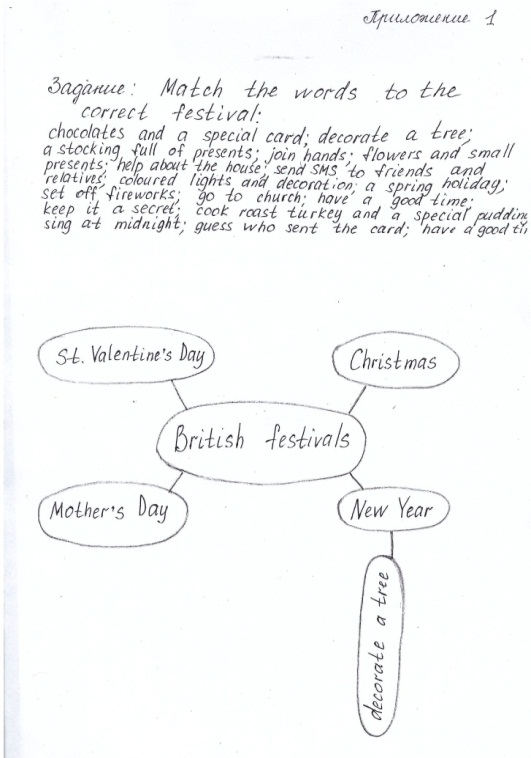 Приложение 1
Задание: Match the words to the
correct festival:
chocolates and a special card; decorate a tree;
a stocking full of presents; join hands; flowers and small
presents; help about the house; send SMS to friends and
relatives; coloured lights and decoration; a spring holiday;
set off fireworks; go to church; have a good time;
keep it a secret; cook roast turkey and a special puddin
sing at midnight; guess who sent the card; have a good ti
St. Valentine's Day
Christmas
British festivals
Mother's Day
New Year
decorate a tree